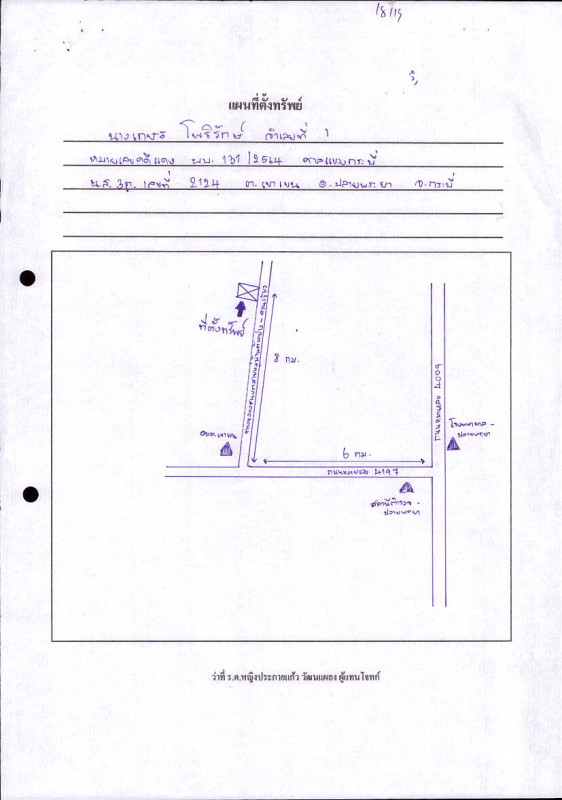 18/19
แผนที่ตั้งทรัพย์
นางเกษร โพธิรักษ์ จำเลยที่ 1
หมายเลขคดีแดง ผบ. 131/2544 ศาลแขวงกระบี่
น.ส. 3ก. เลขที่ 2124 ต. เขาเขน อ. ปลายพระยา จ. กระบี่
ที่ตั้งทรัพย์
8 กม.
ถนนหลวง 4009
โรงพยาบาล -
ปลายพระยา
อบต. เขาเขน
6 กม.
ถนนหลวง 4197
สถานีตำรวจ -
ปลายพระยา
ว่าที่ ร.ต.หญิงประกายแก้ว วัฒนแผลง ผู้แทนโจทก์